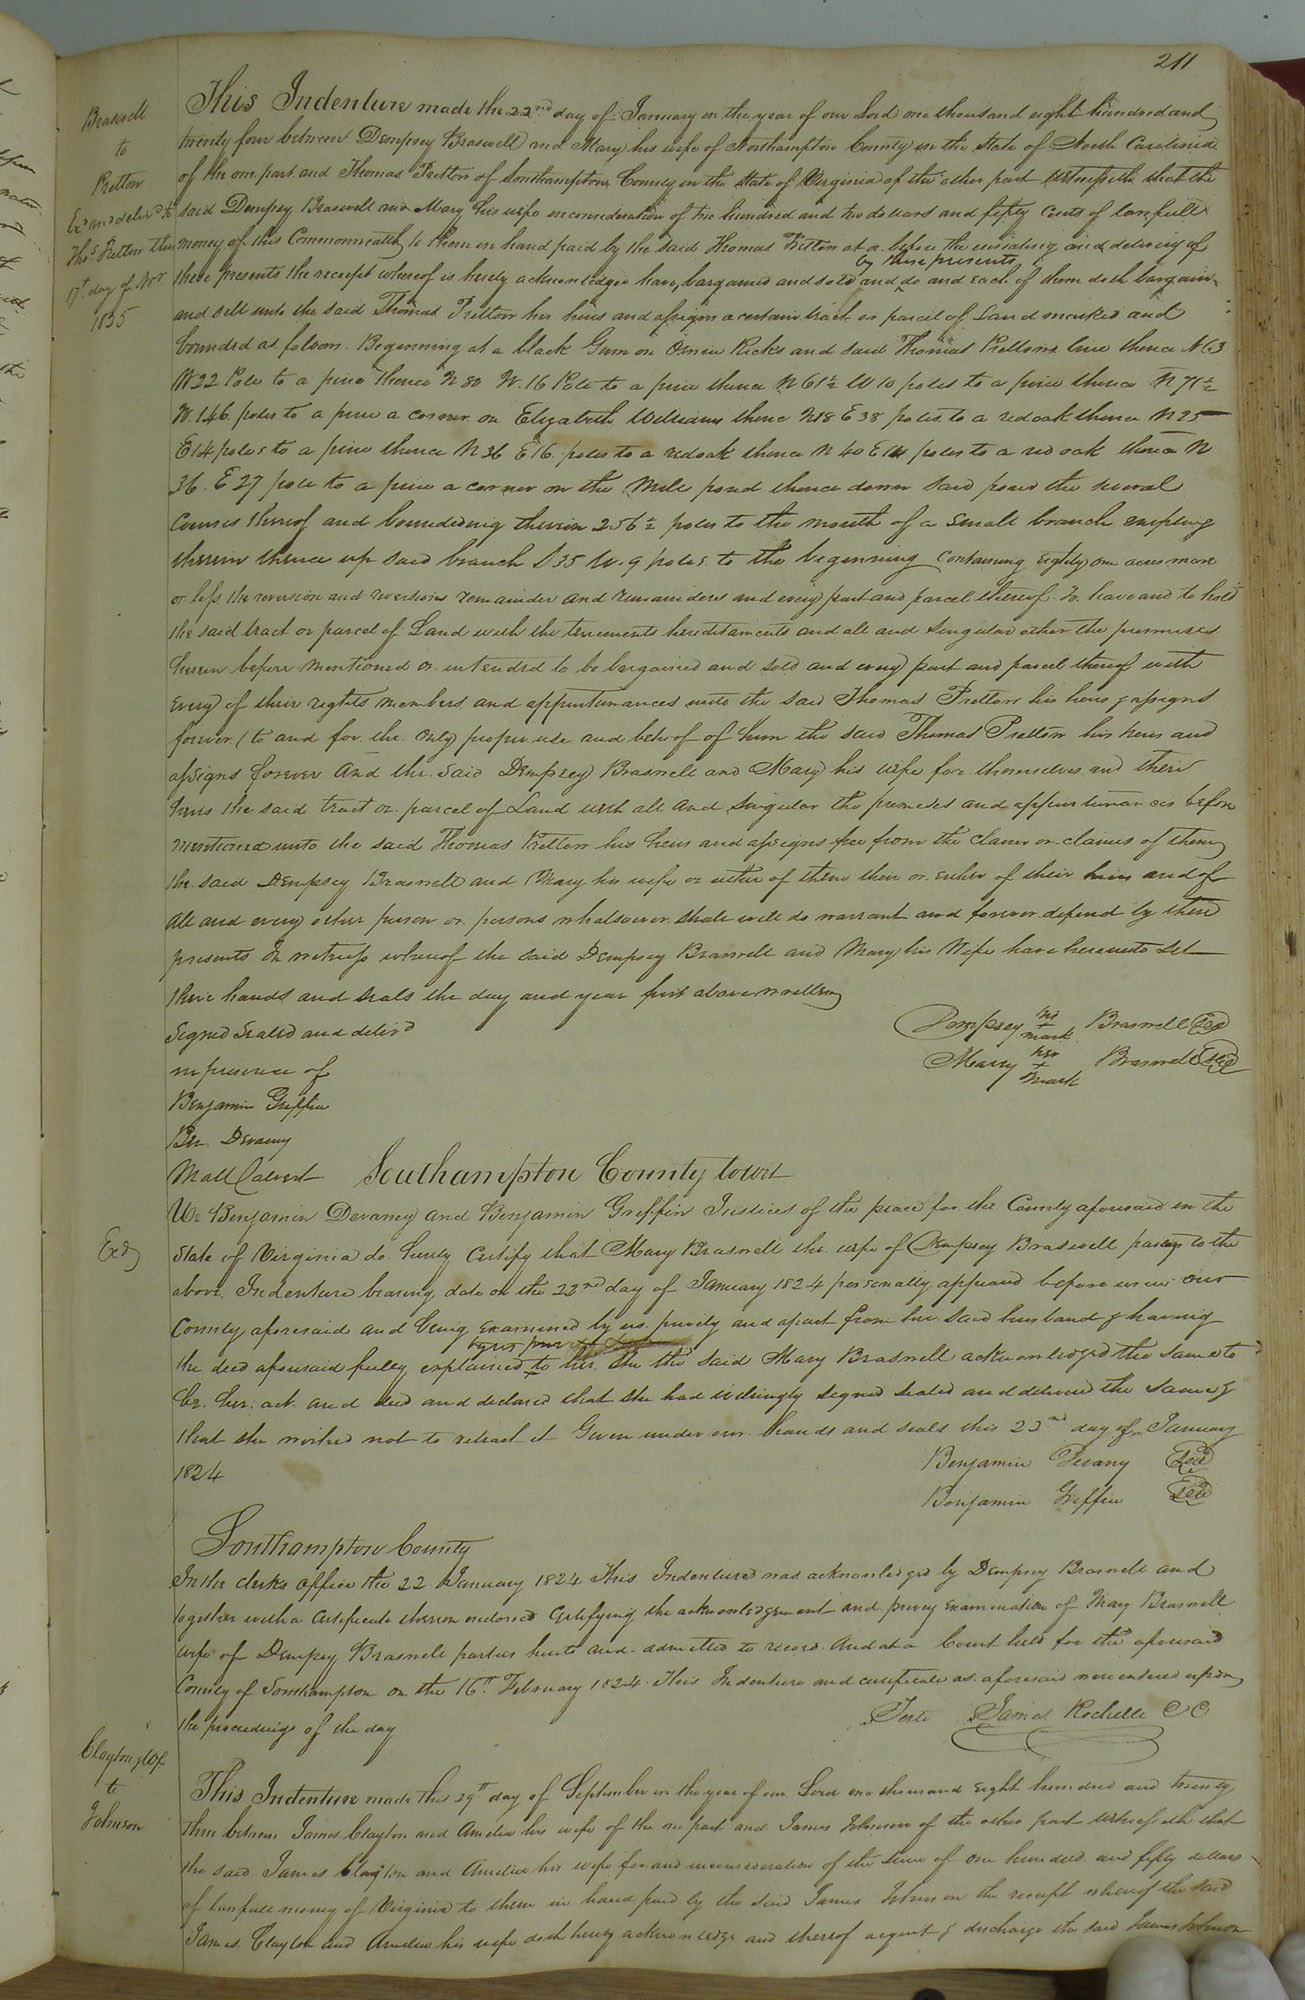 211
Braswell
to
Pretlow
Exd. and deliv'd to
Thos. Pretlow this
17th day of Novr
1835
This Indenture made the 22nd day of January in the year of our Lord one thousand eight hundred and
twenty four between Dempsey Braswell and Mary his wife of Northampton County in the State of North Carolina
of the one part and Thomas Pretlow of Southampton County in the State of Virginia of the other part Witnesseth that the
said Dempsey Braswell and Mary his wife in consideration of two hundred and two dollars and fifty cents of lawfull
money of this Commonwealth to them in hand paid by the said Thomas Pretlow at or before the ensealing and delivery of
by these presents
these presents the receipt whereof is hereby acknowledged have bargained and sold and do and each of them doth bargain
and sell unto the said Thomas Pretlow his heirs and assigns a certain tract or parcel of Land marked and
bounded as follows. Beginning at a black Gum on Ricks and said Thomas Pretlows line thence N 63
W. 22 Pole to a pine thence N 80 W. 16 Pole to a pine thence N 61½ W 10 poles to a pine thence N 71½
W. 146 poles to a pine a corner on Elizabeth Williams thence N 18 E 38 poles to a red oak thence N 25
E 14 poles to a pine thence N 36 E 16 poles to a red oak thence N 40 E 14 poles to a red oak thence N
36. E 27 pole to a pine a corner on the Mill pond thence down said pond the several
Courses thereof and boundeding therein 256½ poles to the mouth of a small branch empting
therein thence up said branch S 35 W. 9 poles to the beginning Containing Eighty one acres more
or less the reversion and reversions remainder and remainders and every part and parcel thereof. To have and to hold
the said tract or parcel of Land with the tenements hereditaments and all and singular other the premises
herein before mentioned or intended to be bargained and sold and every part and parcel thereof with
every of their rights members and appurtenances unto the said Thomas Pretlow his heirs & assigns
forever (to and for the only proper use and behoof of him the said Thomas Pretlow his heirs and
assigns forever And the said Dempsey Braswell and Mary his wife for themselves and their
heirs the said tract or parcel of Land with all and singular the premises and appurtenances before
mentioned unto the said Thomas Pretlow his heirs and assigns free from the claim or claims of them
the said Dempsey Braswell and Mary his wife or either of them their or either of their heirs and of
all and every other person or persons whatsoever shall will do warrant and forever defend by these
presents In witness whereof the said Dempsey Braswell and Mary his Wife have hereunto set
their hands and seals the day and year first above written
Signed Sealed and deliv'd
Dempsey his + mark Braswell Seal
in presence of
Mary her + mark Braswell Seal
Benjamin Griffin
Ben. Devany
Matt Calvert Southampton County towit
We Benjamin Devaney and Benjamin Griffin Justices of the peace for the County aforesaid in the
Exd
State of Virginia do hereby Certify that Mary Braswell the wife of Dempsey Braswell party to the
above Indenture bearing date on the 22nd day of January 1824 personally appeared before us in our
County aforesaid and being examined by us privily and apart from her said husband & having
the deed aforesaid fully explained to her. She the said Mary Braswell acknowledged the same to
be her act and deed and declared that she had willingly signed sealed and delivered the same &
that she wished not to retract it Given under our hands and seals this 22nd day of January
1824
Benjamin Devany Seal
Benjamin Griffin Seal
Southampton County
In the clerks office the 22 January 1824 This Indenture was acknowledged by Dempsey Braswell and
together with a certificate thereon indorsed Certifying the acknowledgement and privy Examination of Mary Braswell
wife of Dempsey Braswell parties hereto and admitted to record. And at a Court held for the aforesaid
County of Southampton on the 16th February 1824. This Indenture and certificate as aforesaid were entered upon
the proceedings of the day
Teste James Rochelle C C
Clayton & Wf
to
Johnson
This Indenture made this 29th day of September in the year of our Lord one thousand eight hundred and twenty
three between James Clayton and Amelia his wife of the one part and James Johnson of the other part Witnesseth that
the said James Clayton and Amelia his wife for and in consideration of the sum of one hundred and fifty dollars
of lawfull money of Virginia to them in hand paid by the said James Johnson the receipt whereof the said
James Clayton and Amelia his wife doth hereby acknowledge and thereof acquit & discharge the said James Johnson